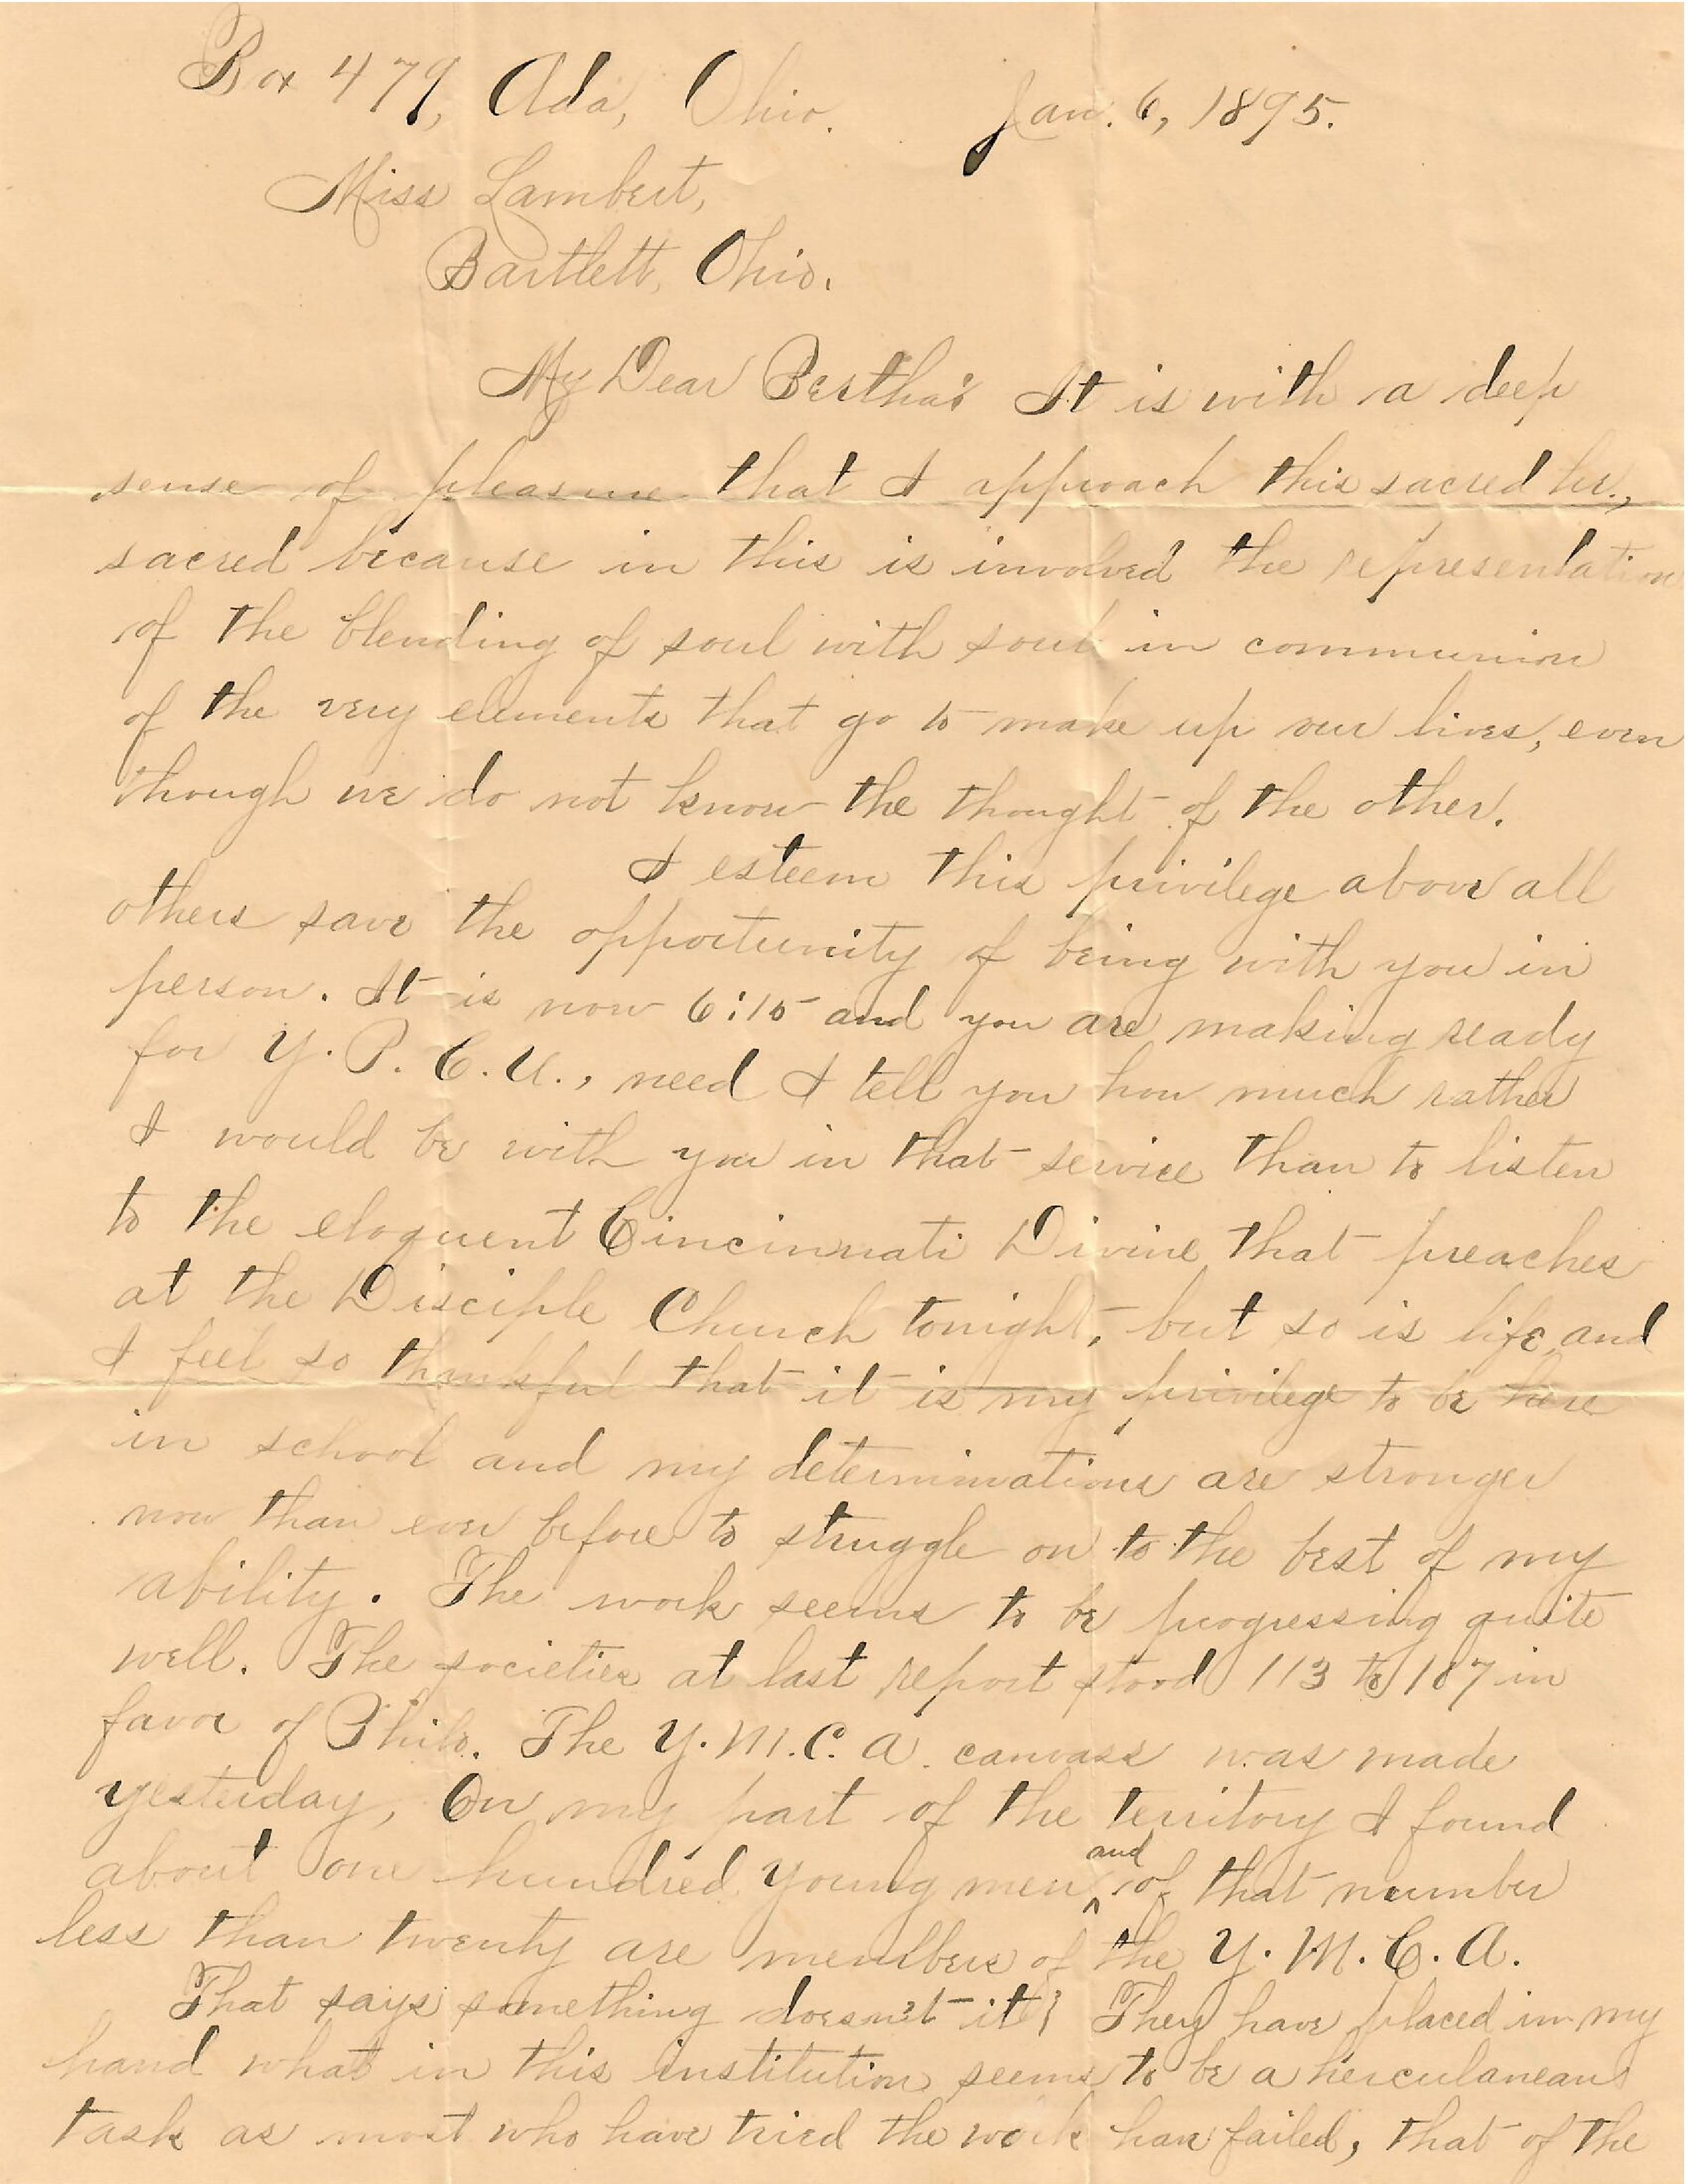 Box 479, Ada, Ohio. Jan. 6, 1895.
Miss Lambert,
Bartlett, Ohio.
My Dear Bertha:- It is with a deep
sense of pleasure that I approach this sacred hr.,
sacred because in this is involved the representation
of the blending of soul with soul in communion
of the very elements that go to make up our lives, even
though we do not know the thought of the other.
I esteem this privilege above all
others save the opportunity of being with you in
person. It is now 6:15 and you are making ready
for Y. P. C. U., need I tell you how much rather
I would be with you in that service than to listen
to the eloquent Cincinnati Divine that preaches
at the Disciple Church tonight, but so is life and
I feel so thankful that it is my privilege to be here
in school and my determinations are stronger
now than ever before to struggle on to the best of my
ability. The work seems to be progressing quite
well. The societies at last report stood 113 to 107 in
favor of Philo. The Y.M.C.A. canvass was made
yesterday, On my part of the territory I found
about one hundred young men and of that number
less than twenty are members of the Y.M.C.A.
That says something doesn't it? They have placed in my
hand what in this institution seems to be a herculanean
task as most who have tried the work have failed, that of the